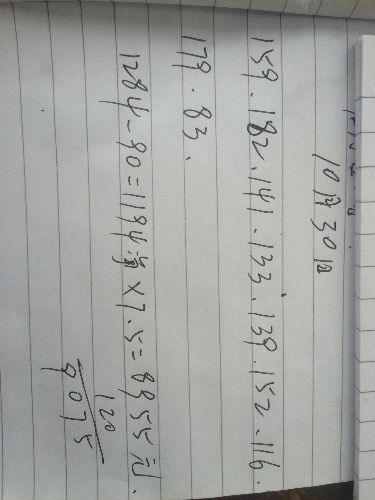 10月30日
159.182.141.133.139.152.116.
179.83.
1284-90=1194斤×7.5=8955元.
120
9075